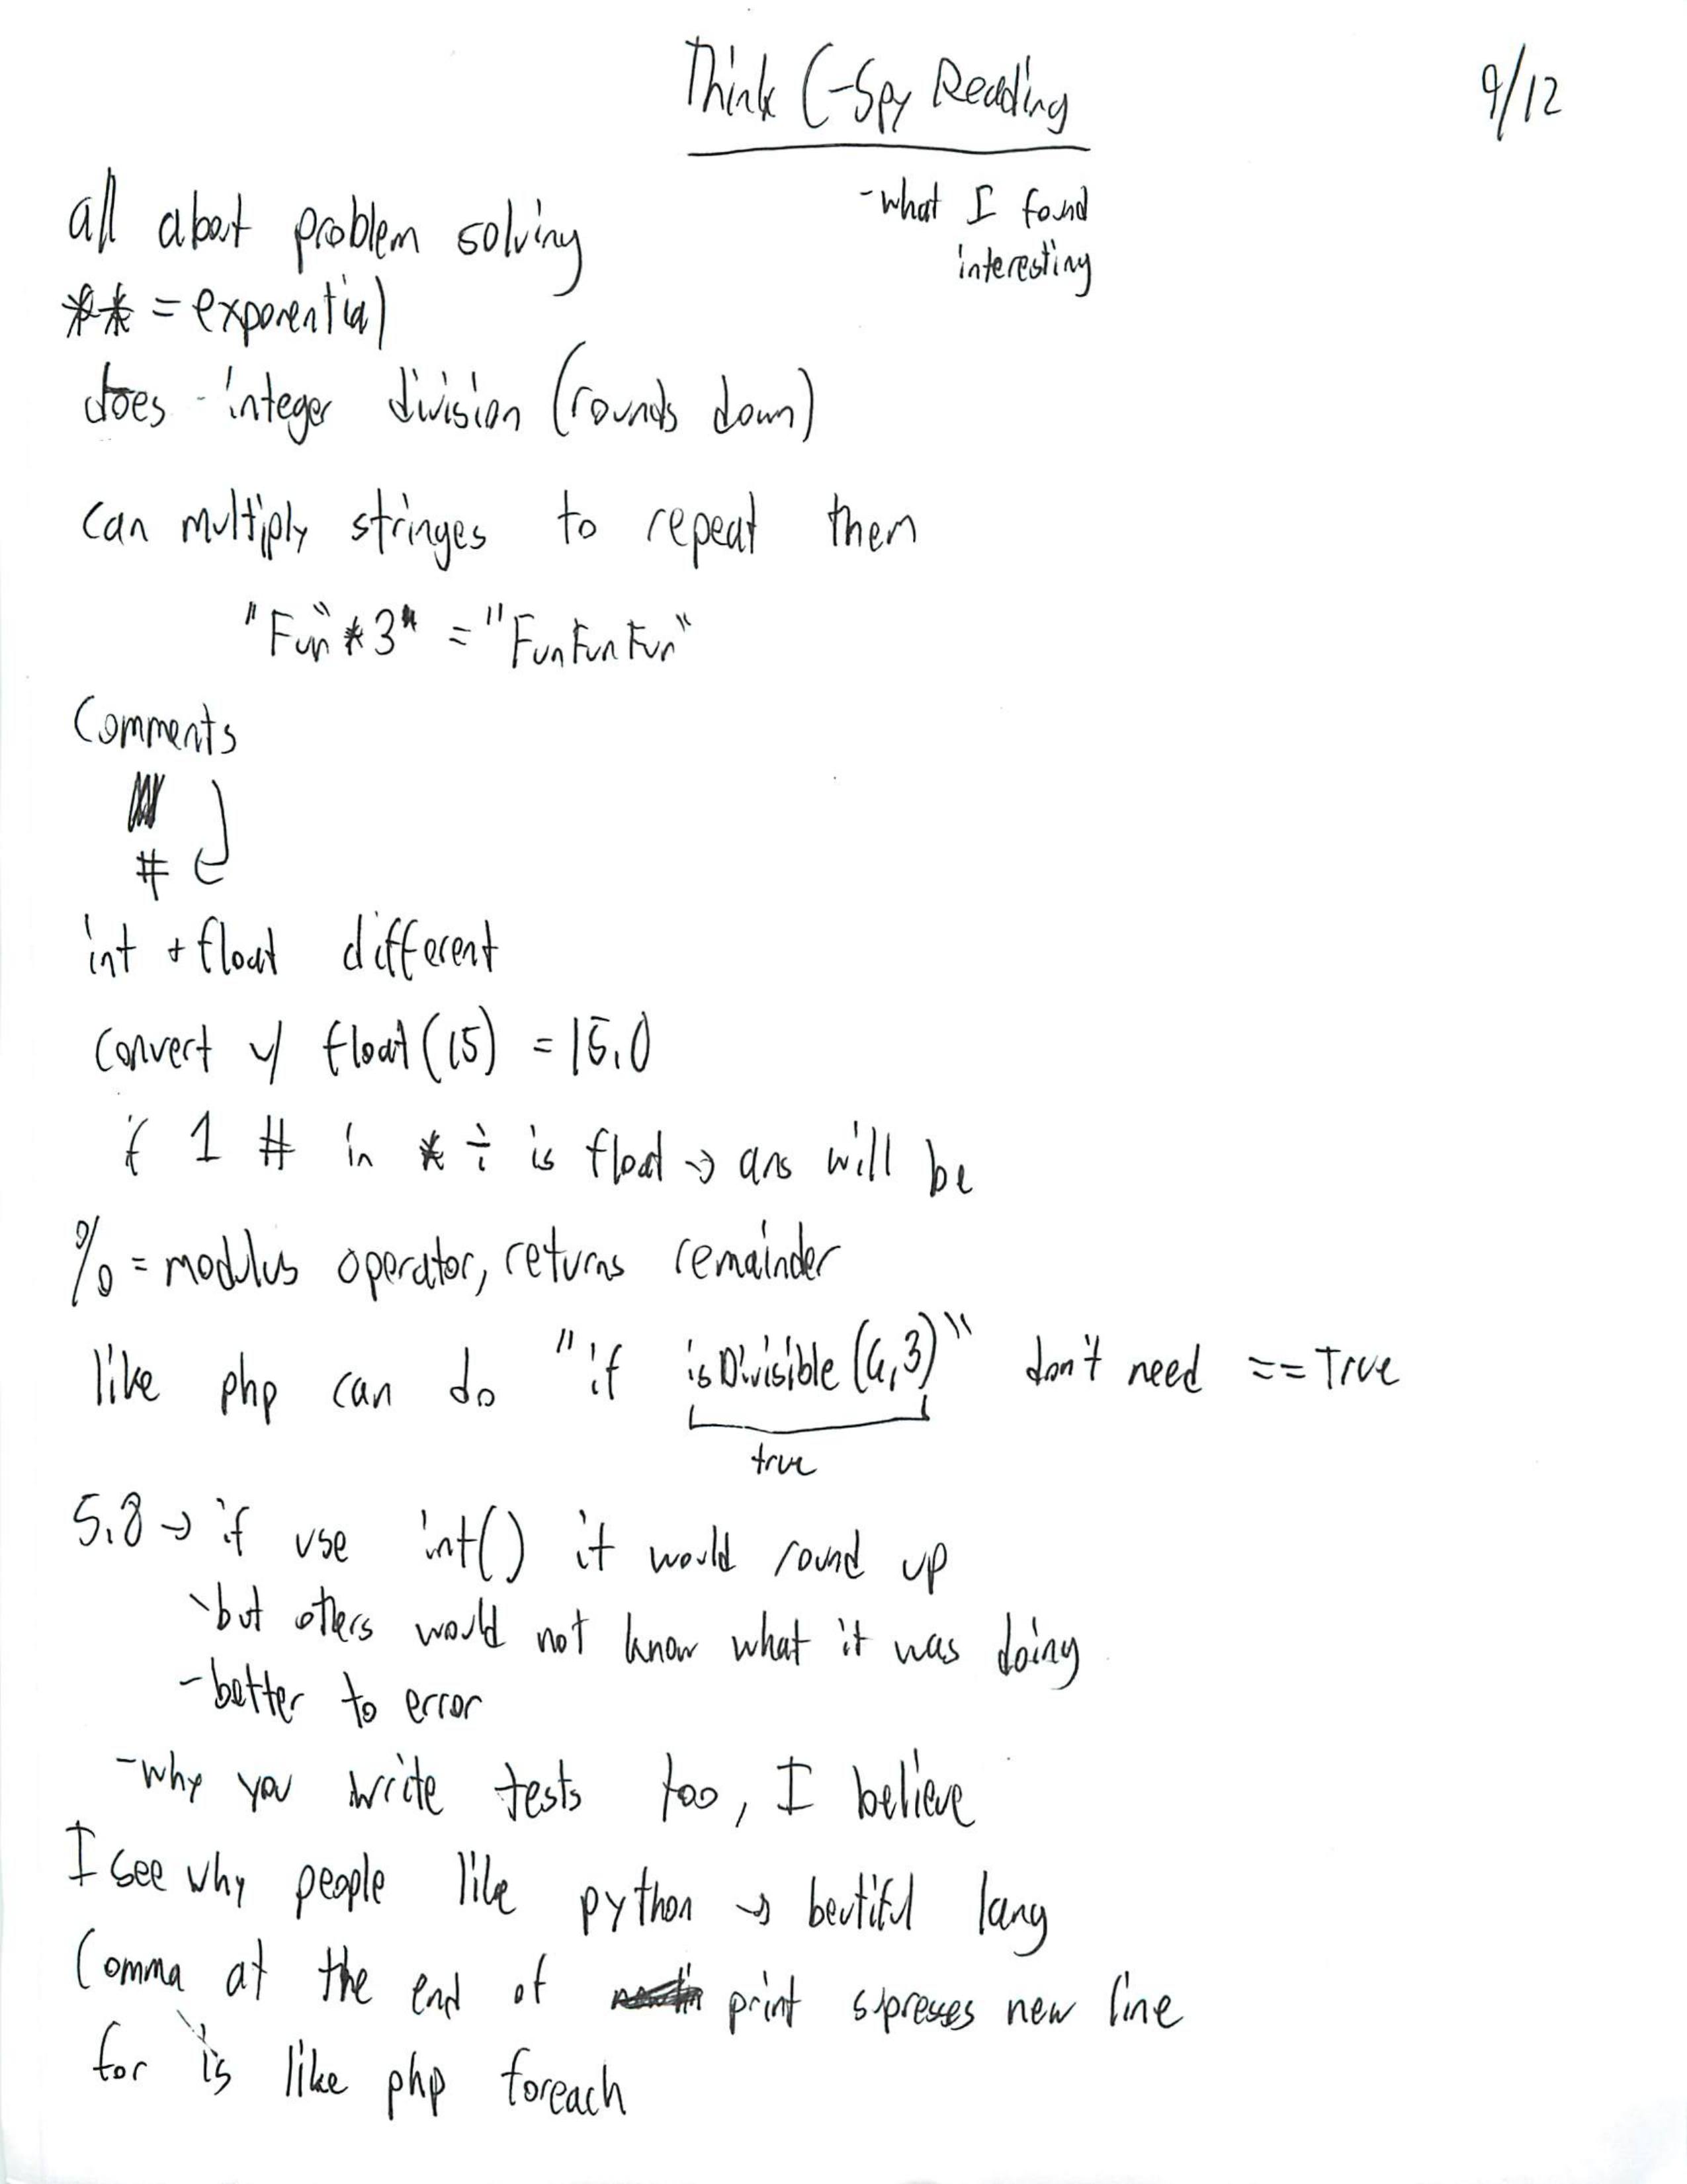 Think C-Spy Reading
9/12
-what I found
interesting
all about problem solving
** = exponential
does - integer division (rounds down)
can multiply stringes to repeat them
"Fun"*3" = "FunFunFun"
Comments
#
int + float different
convert w/ float(15) = 15.0
if 1 # in * ÷ is float → ans will be
% = modulus operator, returns remainder
like php can do "if isDivisible(6,3)" don't need == True
true
5.8 → if use int() it would round up
but others would not know what it was doing
-better to error
-why you write tests too, I believe
I see why people like python → beutiful lang
Comma at the end of print supresses new line
for is like php foreach